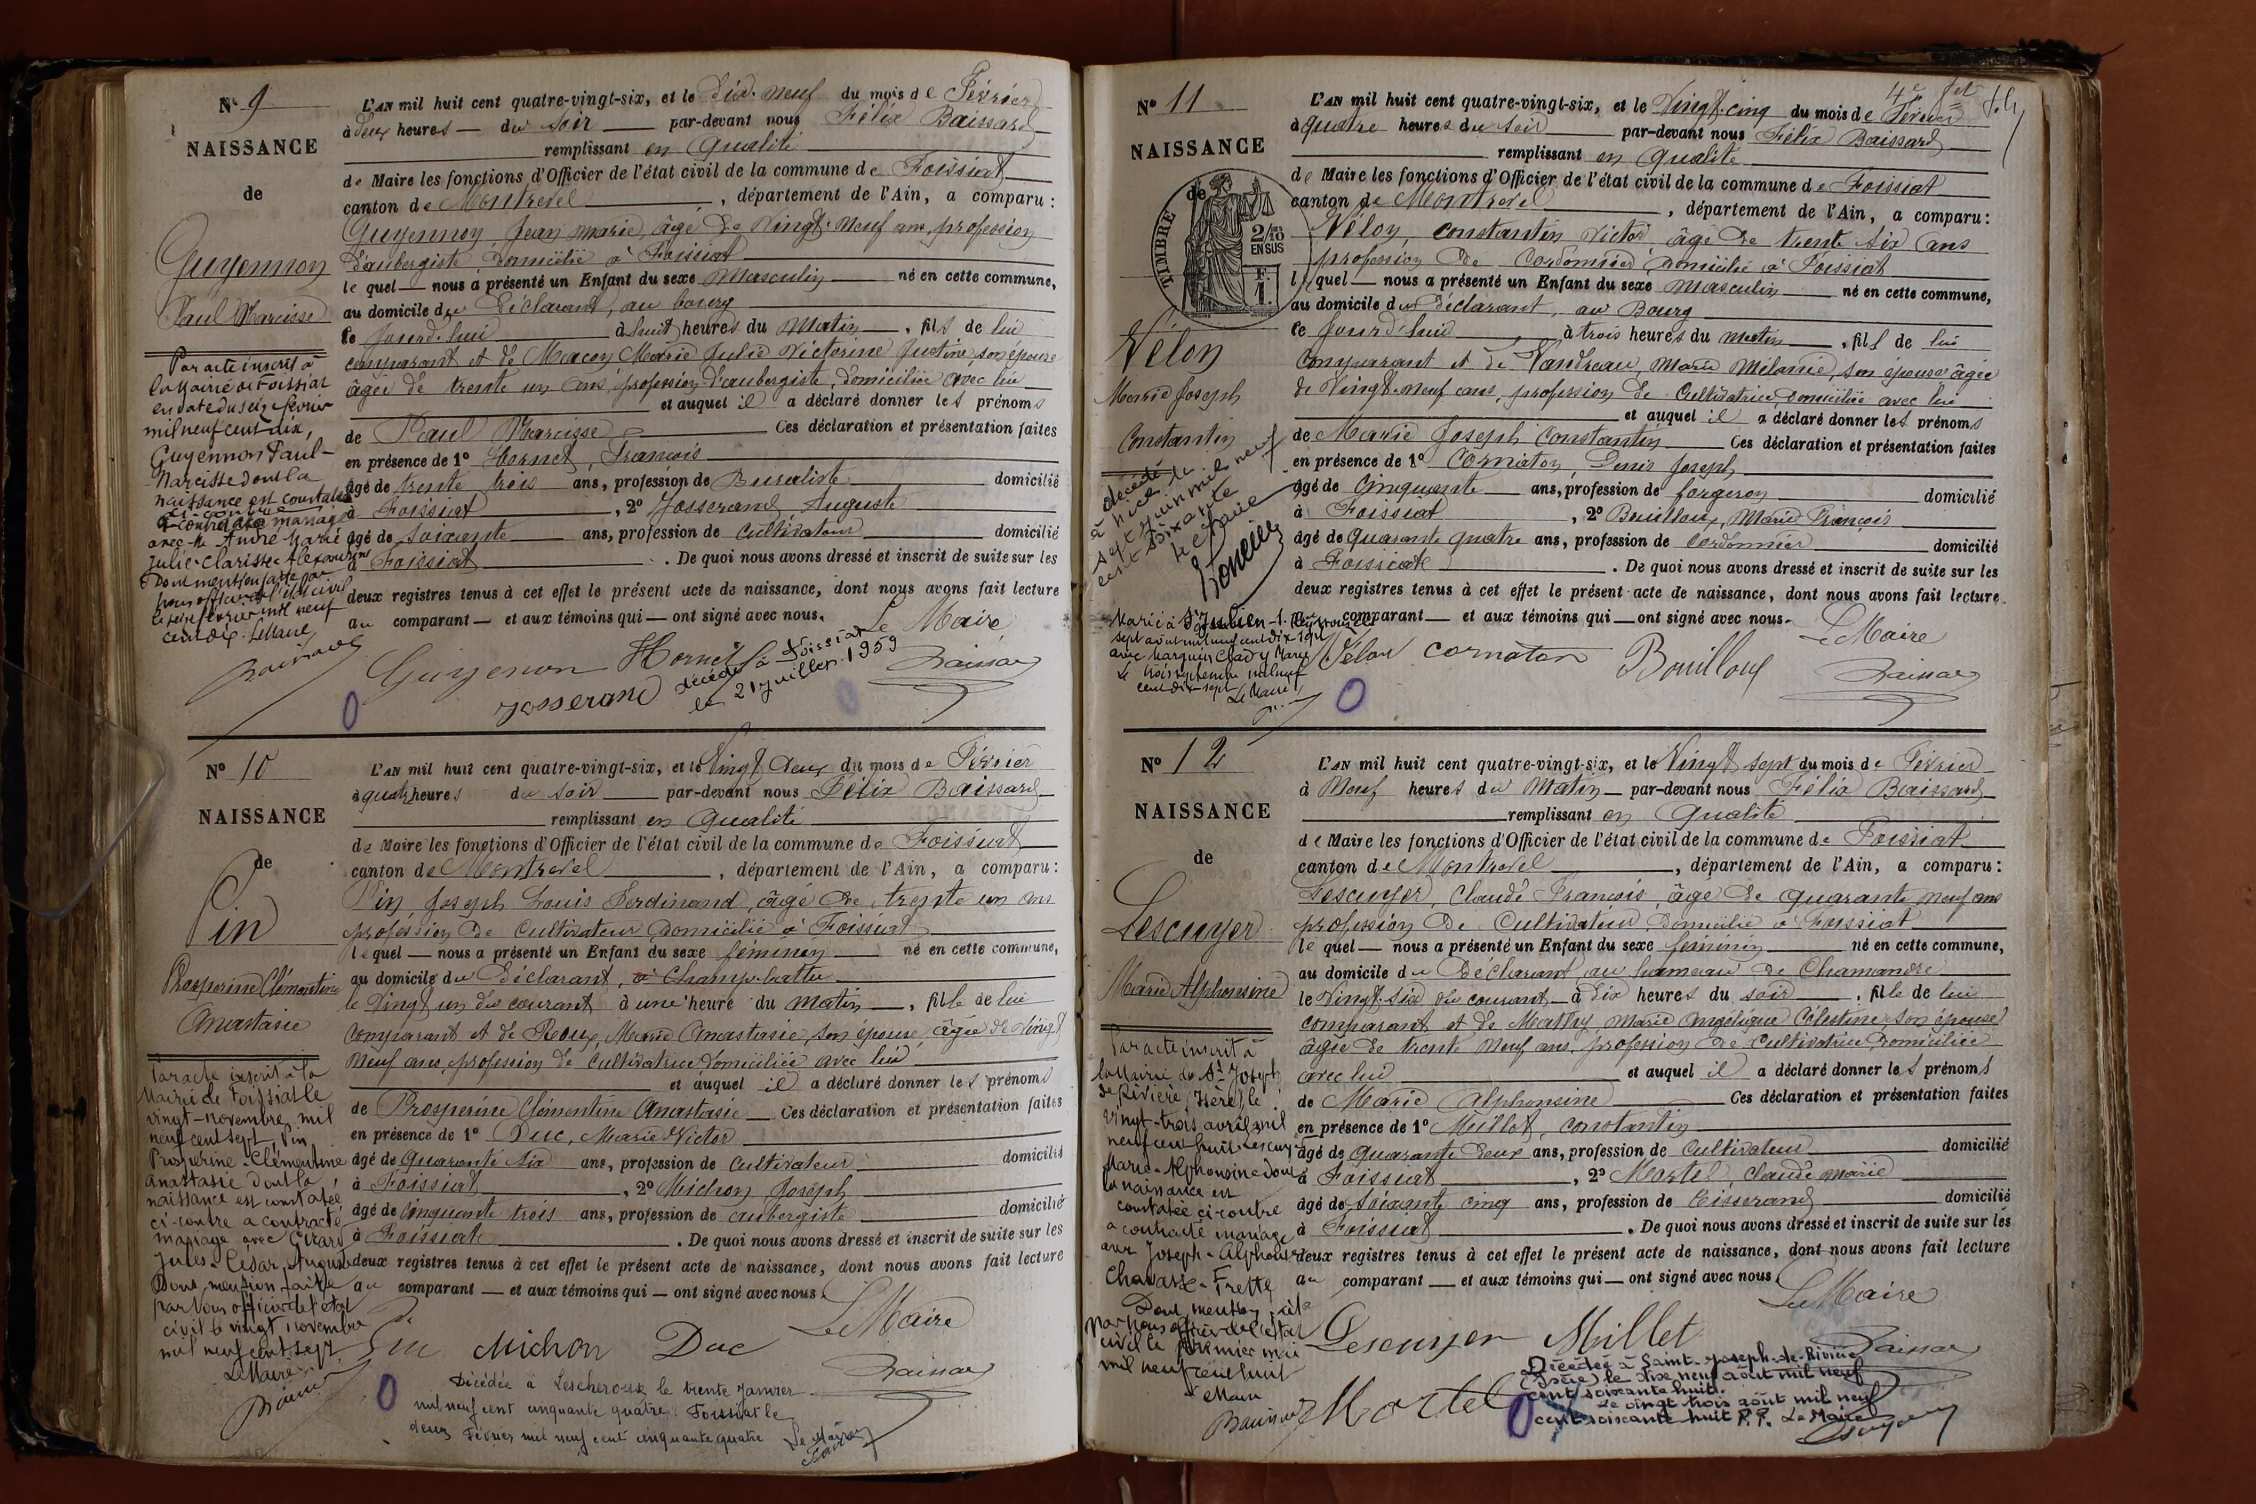 N° 9
NAISSANCE
de
Guyennon
Paul Narcisse
Par acte inscrit à
la Mairie de Foissiat
en date du seize février
mil neuf cent dix,
Guyennon Paul-
Narcisse dont la
naissance est constatée
ci-contre
a contracté mariage
avec Mlle André Marie
Julie-Clarisse-Alexandrine
Dont mention faite par
nous officier de l'état civil
le seize février mil neuf
cent dix. Le Maire,
L'AN mil huit cent quatre-vingt-six, et le dix-neuf du mois de Février
à deux heures — du soir — par-devant nous Félix Baissard
remplissant en qualité
de Maire les fonctions d'Officier de l'état civil de la commune de Foissiat
canton de Montrevel, département de l'Ain, a comparu:
Guyennon, Jean Marie, âgé de Vingt-neuf ans, profession
d'aubergiste, domicilié à Foissiat
le quel — nous a présenté un Enfant du sexe Masculin — né en cette commune,
au domicile du déclarant, au bourg
ce jourd'hui à huit heures du Matin —, fils de lui
comparant et de Macon Marie Julie Victorine Justine son épouse
âgée de trente un ans, profession d'aubergiste, domiciliée avec lui
et auquel il a déclaré donner les prénoms
de Paul Narcisse Ces déclaration et présentation faites
en présence de 1° Hornet, François
âgé de trente trois ans, profession de Buraliste domicilié
à Foissiat, 2° Josserand, Auguste
âgé de Soixante ans, profession de Cultivateur domicilié
à Foissiat. De quoi nous avons dressé et inscrit de suite sur les
deux registres tenus à cet effet le présent acte de naissance, dont nous avons fait lecture
au comparant — et aux témoins qui — ont signé avec nous.
Le Maire
Guyenon Hornet
Josserand
Baissard
décédé à Foissiat
le 21 juillet 1959
N° 10
NAISSANCE
de
Pin
Prosperine Clémentine
Anastasie
Par acte inscrit à la
Mairie de Foissiat le
vingt-novembre mil
neuf cent sept, Pin
Prosperine-Clémentine
Anastasie dont la
naissance est constatée
ci-contre a contracté
mariage avec Girard
Jules-César-Auguste
Dont mention faite
par Nous officier de l'état
civil le vingt novembre
mil neuf cent sept
Le Maire
L'AN mil huit cent quatre-vingt-six, et le Vingt deux du mois de Février
à quatre heures du soir — par-devant nous Félix Baissard
remplissant en qualité
de Maire les fonctions d'Officier de l'état civil de la commune de Foissiat
canton de Montrevel, département de l'Ain, a comparu:
Pin Joseph Louis Ferdinand, âgé de trente un ans
profession de Cultivateur domicilié à Foissiat
le quel — nous a présenté un Enfant du sexe féminin — né en cette commune,
au domicile du déclarant, à Champ-battu
le Vingt un du courant à une heure du matin —, fille de lui
comparant et de Roux, Marie Anastasie, son épouse, âgée de Vingt
neuf ans, profession de Cultivatrice domiciliée avec lui
et auquel il a déclaré donner les prénoms
de Prosperine Clémentine Anastasie — Ces déclaration et présentation faites
en présence de 1° Duc, Marie Victor
âgé de Quarante six ans, profession de Cultivateur domicilié
à Foissiat, 2° Michon Joseph
âgé de Cinquante trois ans, profession de aubergiste domicilié
à Foissiat. De quoi nous avons dressé et inscrit de suite sur les
deux registres tenus à cet effet le présent acte de naissance, dont nous avons fait lecture
au comparant — et aux témoins qui — ont signé avec nous.
Le Maire
Pin Michon Duc
Baissard
Décédée à Lescheroux le trente janvier
mil neuf cent cinquante quatre. Foissiat le
deux Février mil neuf cent cinquante quatre Le Maire
N° 11
NAISSANCE
de
TIMBRE
2/10
EN SUS
F.
1.
Vélon
Marie Joseph
Constantin
décédé
à Nice le
sept juin mil neuf
cent soixante
le Maire
Marié à St Julien-s.-Reyssouze
sept août mil neuf cent dix sept
avec Marguin Clady Marie
Le trois septembre mil neuf
cent dix-sept
Le Maire
4e fet
L'AN mil huit cent quatre-vingt-six, et le Vingt-cinq du mois de Février
à quatre heures du soir par-devant nous Félix Baissard
remplissant en qualité
de Maire les fonctions d'Officier de l'état civil de la commune de Foissiat
canton de Montrevel, département de l'Ain, a comparu:
Vélon, Constantin Victor, âgé de trente six ans
profession de Cordonnier, domicilié à Foissiat
lequel — nous a présenté un Enfant du sexe Masculin — né en cette commune,
au domicile du déclarant, au Bourg
ce jourd'hui à trois heures du matin —, fils de lui
comparant et de Vandreau, Marie Mélanie, son épouse âgée
de Vingt-neuf ans, profession de Cultivatrice domiciliée avec lui
et auquel il a déclaré donner les prénoms
de Marie Joseph Constantin — Ces déclaration et présentation faites
en présence de 1° Cornaton, Denis Joseph
âgé de Cinquante ans, profession de forgeron domicilié
à Foissiat, 2° Bouilloux, Marie François
âgé de Quarante quatre ans, profession de Cordonnier domicilié
à Foissiat. De quoi nous avons dressé et inscrit de suite sur les
deux registres tenus à cet effet le présent acte de naissance, dont nous avons fait lecture
au comparant — et aux témoins qui — ont signé avec nous.
Le Maire
Vélon Cornaton Bouilloux
Baissard
N° 12
NAISSANCE
de
Lescuyer
Marie Alphonsine
Par acte inscrit à
la Mairie de St Joseph
de Rivière, (Isère), le
vingt-trois avril mil
neuf cent huit Lescuyer
Marie-Alphonsine dont
la naissance est
constatée ci-contre
a contracté mariage
avec Joseph-Alphonse
Chavasse-Frette
Dont mention faite
par nous officier de l'état
civil le premier mai
mil neuf cent huit
Le Maire
L'AN mil huit cent quatre-vingt-six, et le Vingt sept du mois de Février
à Neuf heures du Matin — par-devant nous Félix Baissard
remplissant en qualité
de Maire les fonctions d'Officier de l'état civil de la commune de Foissiat
canton de Montrevel, département de l'Ain, a comparu:
Lescuyer, Claude François, âgé de quarante neuf ans
profession de Cultivateur, domicilié à Foissiat
le quel — nous a présenté un Enfant du sexe féminin — né en cette commune,
au domicile du déclarant, au hameau de Chamandre
le Vingt-six du courant — à dix heures du soir —, fille de lui
comparant et de Mathy, Marie Angélique Célestine son épouse
âgée de trente neuf ans, profession de Cultivatrice, domiciliée
avec lui et auquel il a déclaré donner les prénoms
de Marie Alphonsine Ces déclaration et présentation faites
en présence de 1° Millet, Constantin
âgé de Quarante deux ans, profession de Cultivateur domicilié
à Foissiat, 2° Mortel, Claude Marie
âgé de Soixante cinq ans, profession de tisserand domicilié
à Foissiat. De quoi nous avons dressé et inscrit de suite sur les
deux registres tenus à cet effet le présent acte de naissance, dont nous avons fait lecture
au comparant — et aux témoins qui — ont signé avec nous.
Le Maire
Lescuyer Millet
Mortel
Baissard
Décédée à Saint-Joseph-de-Rivière
(Isère) le dix neuf août mil neuf
cent soixante huit.
Le vingt trois août mil neuf
cent soixante huit P.P. Le Maire